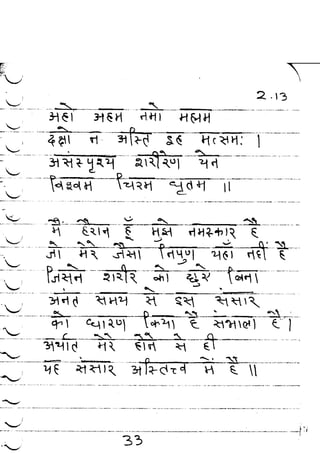 2.13
अहो अहम नमो मह्यम
दक्षो न अस्ति इह मत्सम: |
असंस्पृश्य शरीरेण येन
विश्वम चिरम धृतम ||
मैं हैरान हूँ मुझे नमस्कार है
जो मेरे जैसा निपुण यहाँ नहीं है
जिसने शरीर को छुए बिना
अनंत समय से इस संसार
को धारण किया है संभाला है |
अर्थात मेरे होने से ही
यह संसार अस्तित्त्व में है ||
33